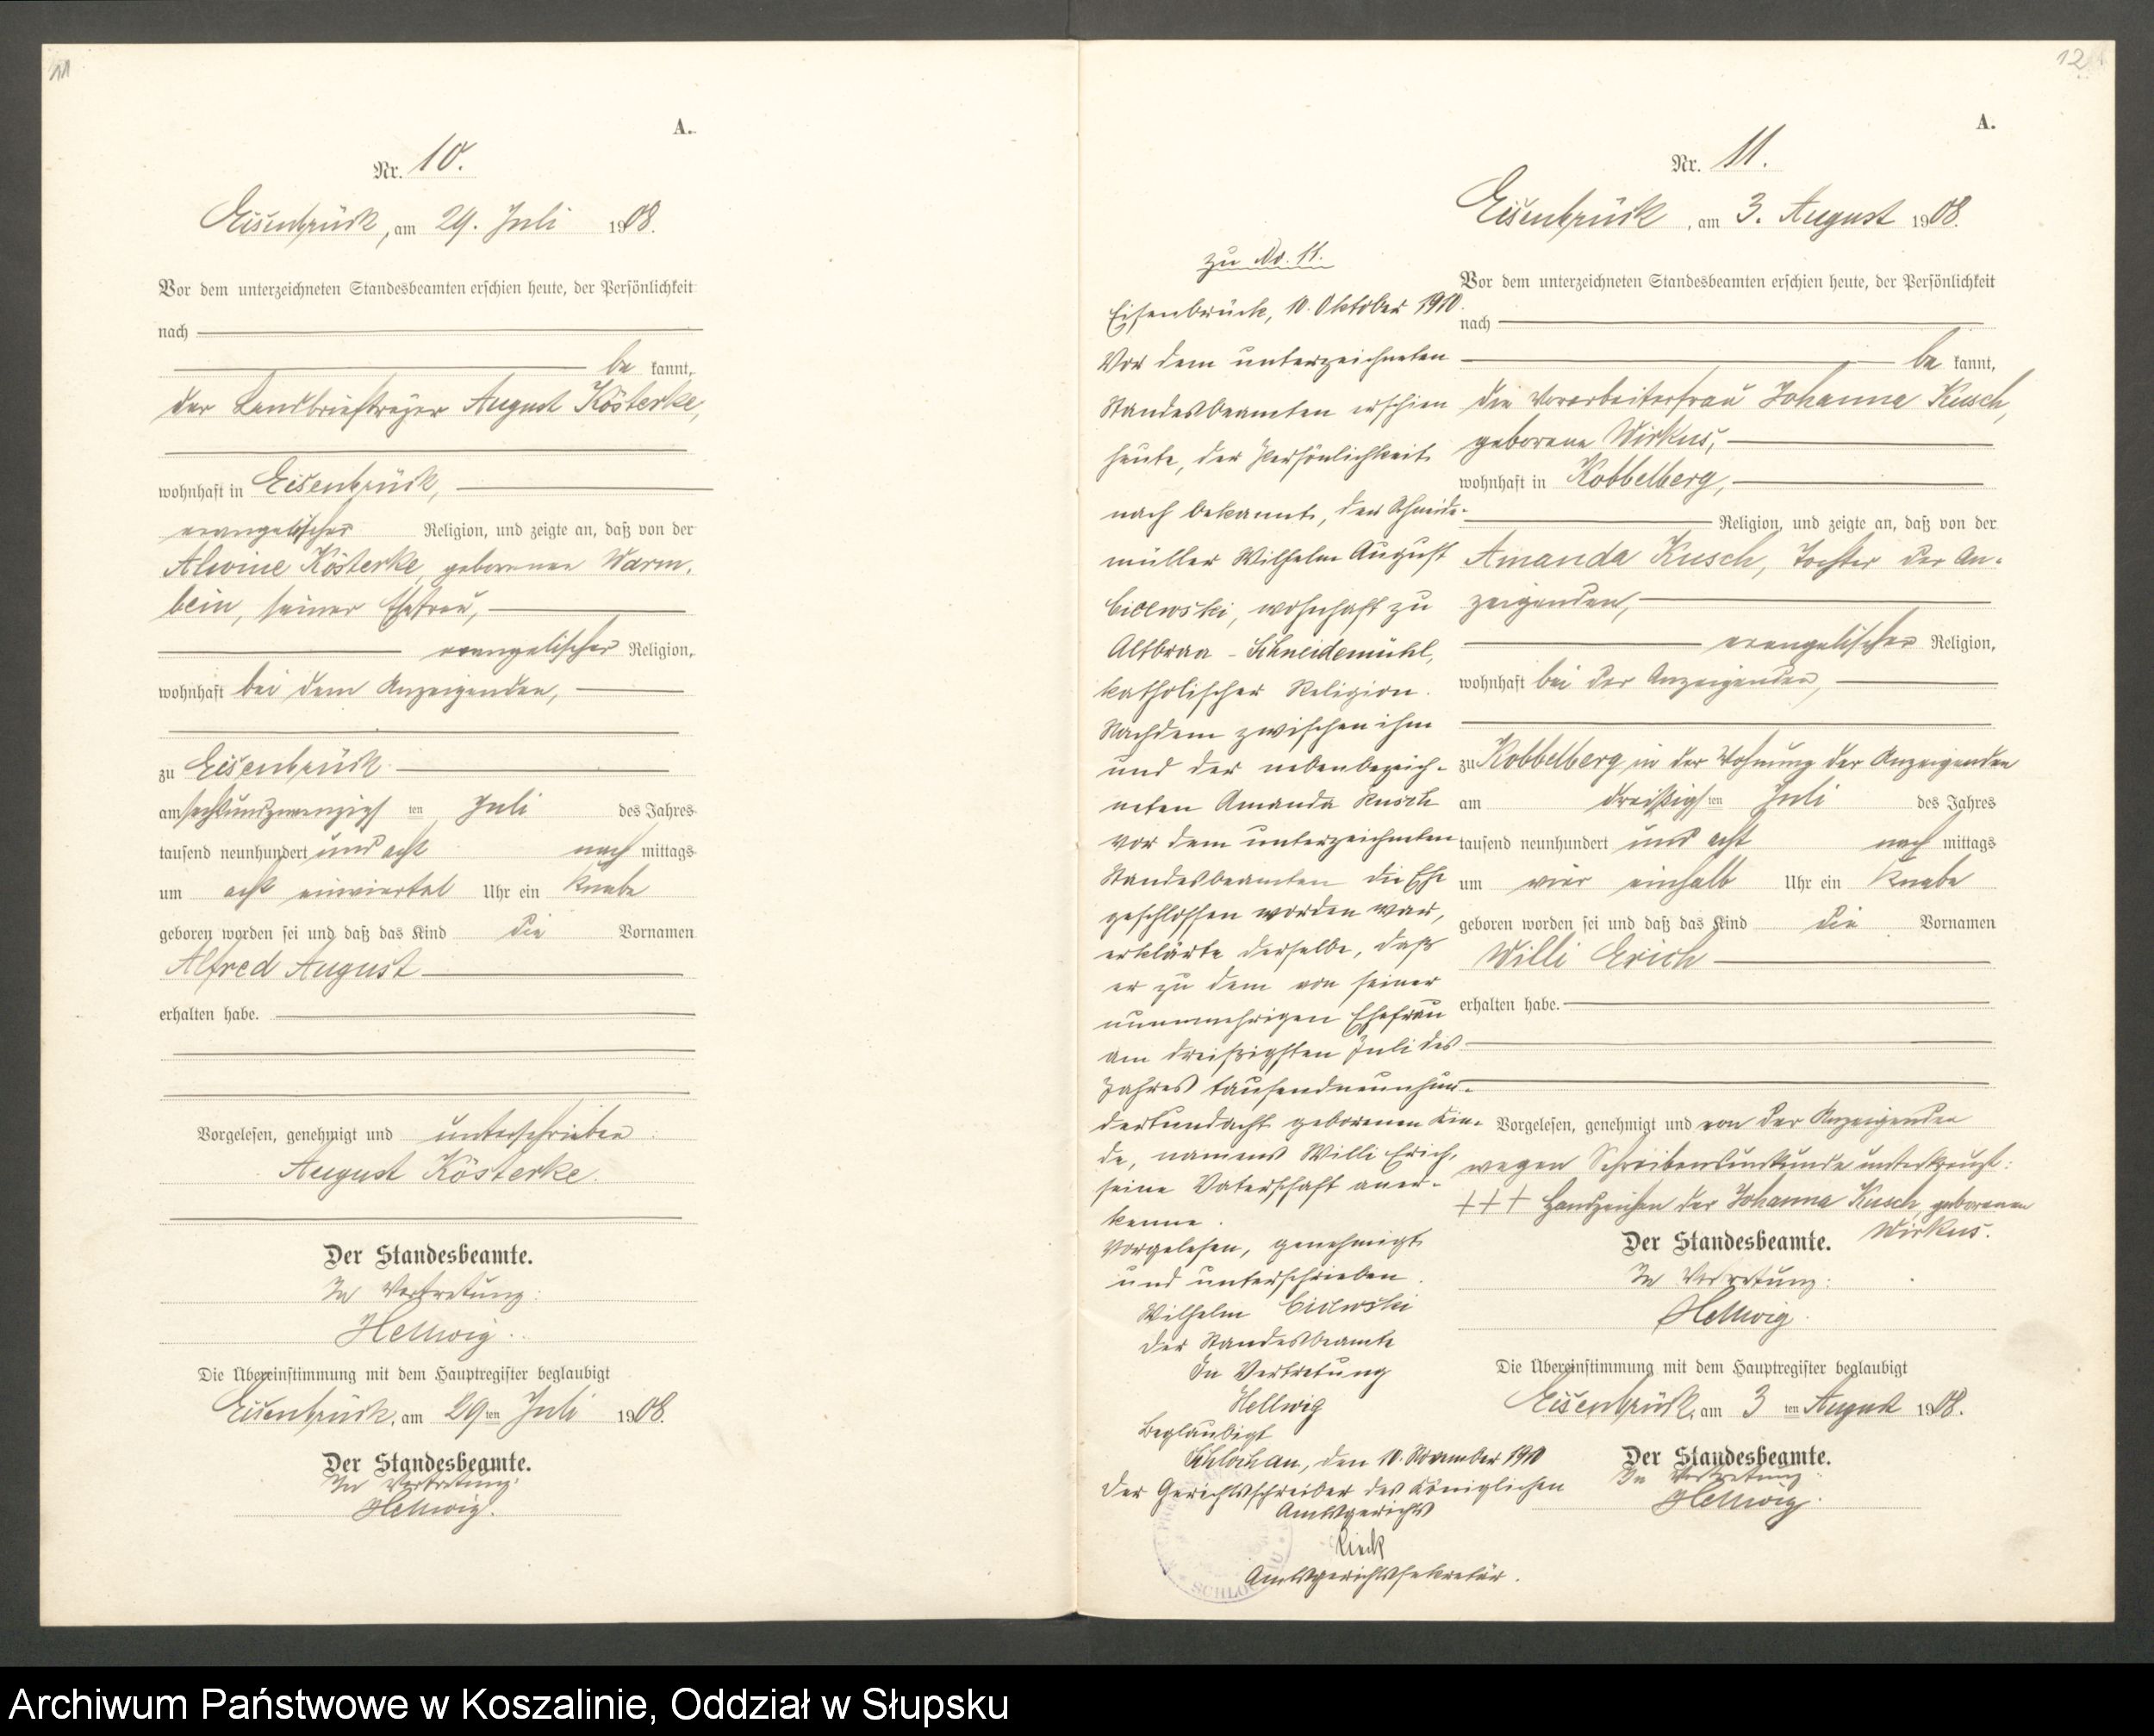 11
A.
Nr. 10.
Eisenbrück, am 29. Juli 1908.
Vor dem unterzeichneten Standesbeamten erschien heute, der Persönlichkeit
nach
be kannt,
der Landbriefträger August Kösterke,
wohnhaft in Eisenbrück,
evangelischer Religion, und zeigte an, daß von der
Alwine Kösterke geborenen Warm-
bein, seiner Ehefrau,
evangelischer Religion,
wohnhaft bei dem Anzeigenden,
zu Eisenbrück
am sechsundzwanzigs ten Juli des Jahres
tausend neunhundert und acht nach mittags
um acht einviertel Uhr ein Knabe
geboren worden sei und daß das Kind die Vornamen
Alfred August
erhalten habe.
Vorgelesen, genehmigt und unterschrieben:
August Kösterke.
Der Standesbeamte.
In Vertretung:
Hellwig.
Die Übereinstimmung mit dem Hauptregister beglaubigt
Eisenbrück, am 29 ten Juli 1908.
Der Standesbeamte.
In Vertretung:
Hellwig.
12
zu No. 11.
Eisenbrück, 10. Oktober 1910.
Vor dem unterzeichneten
Standesbeamten erschien
heute, der Persönlichkeit
nach bekannt, der Schneide-
müller Wilhelm August
wohnhaft zu
Altbraa - Schneidemühl,
katholischer Religion.
Nachdem zwischen ihm
und der nebenbezeich-
neten Amanda Kusch
vor dem unterzeichneten
Standesbeamten die Ehe
geschlossen worden war,
erklärte derselbe, daß
er zu dem von seiner
nunmehrigen Ehefrau
am dreißigsten Juli des
Jahres tausendneunhun-
dertundacht geborenen Kin-
de, namens Willi Erich,
seine Vaterschaft aner-
kenne.
Vorgelesen, genehmigt
und unterschrieben.
Wilhelm
Der Standesbeamte
In Vertretung
Hellwig
Beglaubigt
Schlochau, den 10. November 1910
Der Gerichtsschreiber des Königlichen
Amtsgerichts
Amtsgerichtssekretär.
SCHLOCHAU
A.
Nr. 11.
Eisenbrück, am 3. August 1908.
Vor dem unterzeichneten Standesbeamten erschien heute, der Persönlichkeit
nach
be kannt,
die Vorarbeiterfrau Johanna Kusch,
geborene Wirkus,
wohnhaft in Kobbelberg,
Religion, und zeigte an, daß von der
Amanda Kusch, Tochter der An-
zeigenden,
evangelischer Religion,
wohnhaft bei der Anzeigenden,
zu Kobbelberg in der Wohnung der Anzeigenden
am dreißigs ten Juli des Jahres
tausend neunhundert und acht nach mittags
um vier einhalb Uhr ein Knabe
geboren worden sei und daß das Kind die Vornamen
Willi Erich
erhalten habe.
Vorgelesen, genehmigt und von der Anzeigenden
wegen Schreibensunkunde unterkreuzt:
+++ Handzeichen der Johanna Kusch, geborenen
Wirkus.
Der Standesbeamte.
In Vertretung:
Hellwig.
Die Übereinstimmung mit dem Hauptregister beglaubigt
Eisenbrück, am 3 ten August 1908.
Der Standesbeamte.
In Vertretung:
Hellwig.
Archiwum Państwowe w Koszalinie, Oddział w Słupsku